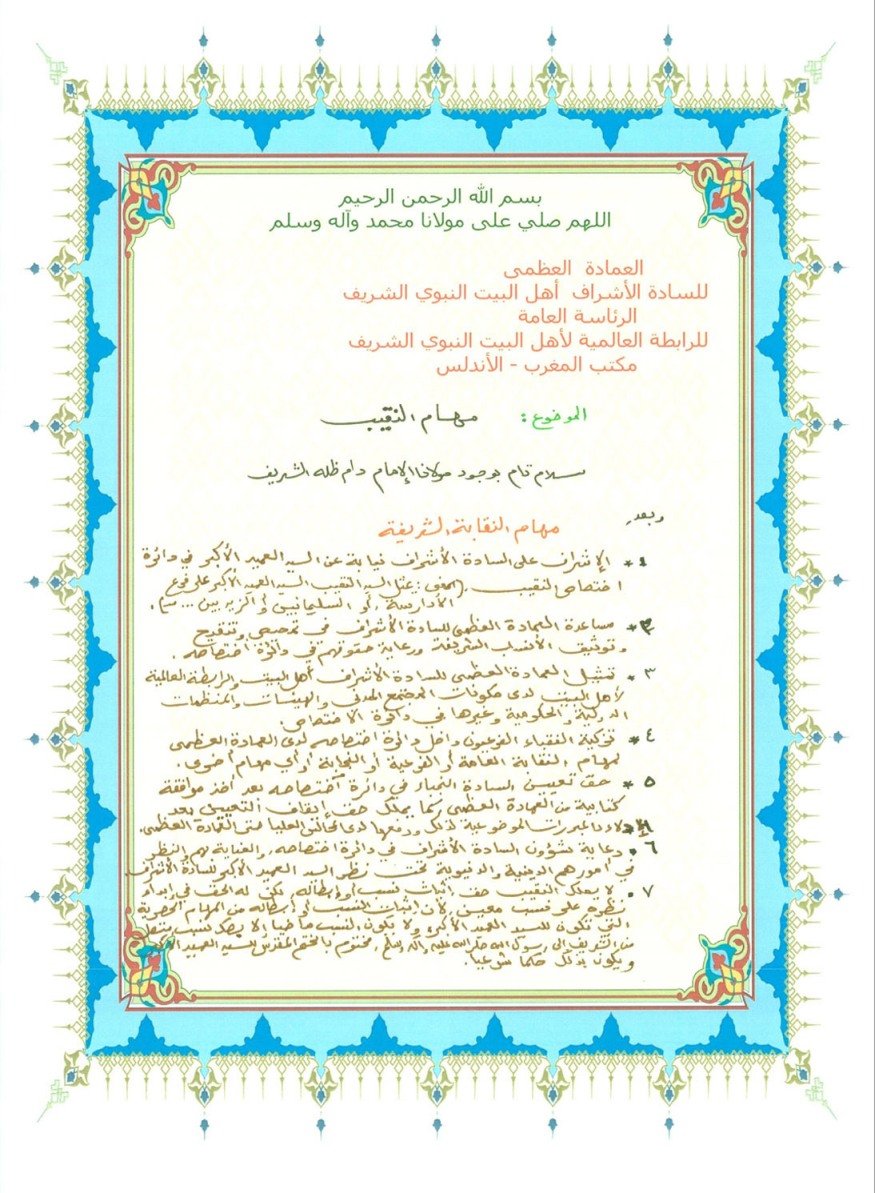 بسم الله الرحمن الرحيم
اللهم صلي على مولانا محمد وآله وسلم
العمادة العظمى
للسادة الأشراف أهل البيت النبوي الشريف
الرئاسة العامة
للرابطة العالمية لأهل البيت النبوي الشريف
مكتب المغرب - الأندلس
الموضوع : مهام النقيب
سلام تام بوجود مولانا الإمام دام ظله الشريف
وبعد
مهام النقابة الشريفة
1* الإشراف على السادة الأشراف نيابة عن السيد العميد الأكبر في دائرة
اختصاص النقيب. (بمعنى: يمثل السيد النقيب السيد العميد الأكبر على فرع
الأدارسة، أو السليمانيين أو الزيديين ...
2* مساعدة العمادة العظمى للسادة الأشراف في تمحيص وتنقيح
وتوثيق الأنساب الشريفة ورعاية حقوقهم في دائرة اختصاصه.
3* تمثيل العمادة العظمى للسادة الأشراف أهل البيت والرابطة العالمية
لأهل البيت لدى مكونات المجتمع المدني والهيئات والمنظمات
الدولية والحكومية وغيرها في دائرة الاختصاص.
4* تزكية النقباء الفرعيون داخل دائرة اختصاصه لدى العمادة العظمى
لمهام النقابة العامة أو الفرعية أو النجابة أو أي مهام أخرى.
5* حق تعيين السادة النجباء في دائرة اختصاصه بعد أخذ موافقة
كتابية من العمادة العظمى كما يملك حق إيقاف التعيين بعد
المبررات الموضوعية لذلك ورفعها لدى مجالس العليا العمادة العظمى.
6. رعاية شؤون السادة الأشراف في دائرة اختصاصه، والعناية بهم والنظر
في أمورهم الدينية والدنيوية تحت نظر السيد العميد الأكبر للسادة الأشراف.
7. لا يملك النقيب حق اثبات نسب أو إبطاله، يكن له الحق في إبداء
نظرة على نسب معين، لأن اثبات النسب أو إبطاله من المهام الحصرية
التي تكون للسيد العميد الأكبر، ولا يكون النسب ماضيا إلا بصك نسب
من الشريف إلى رسول الله صلى الله عليه وآله وسلم، مختوم بالختم المقدس للسيد العميد الأكبر
ويكون بذلك حكما شرعيا.